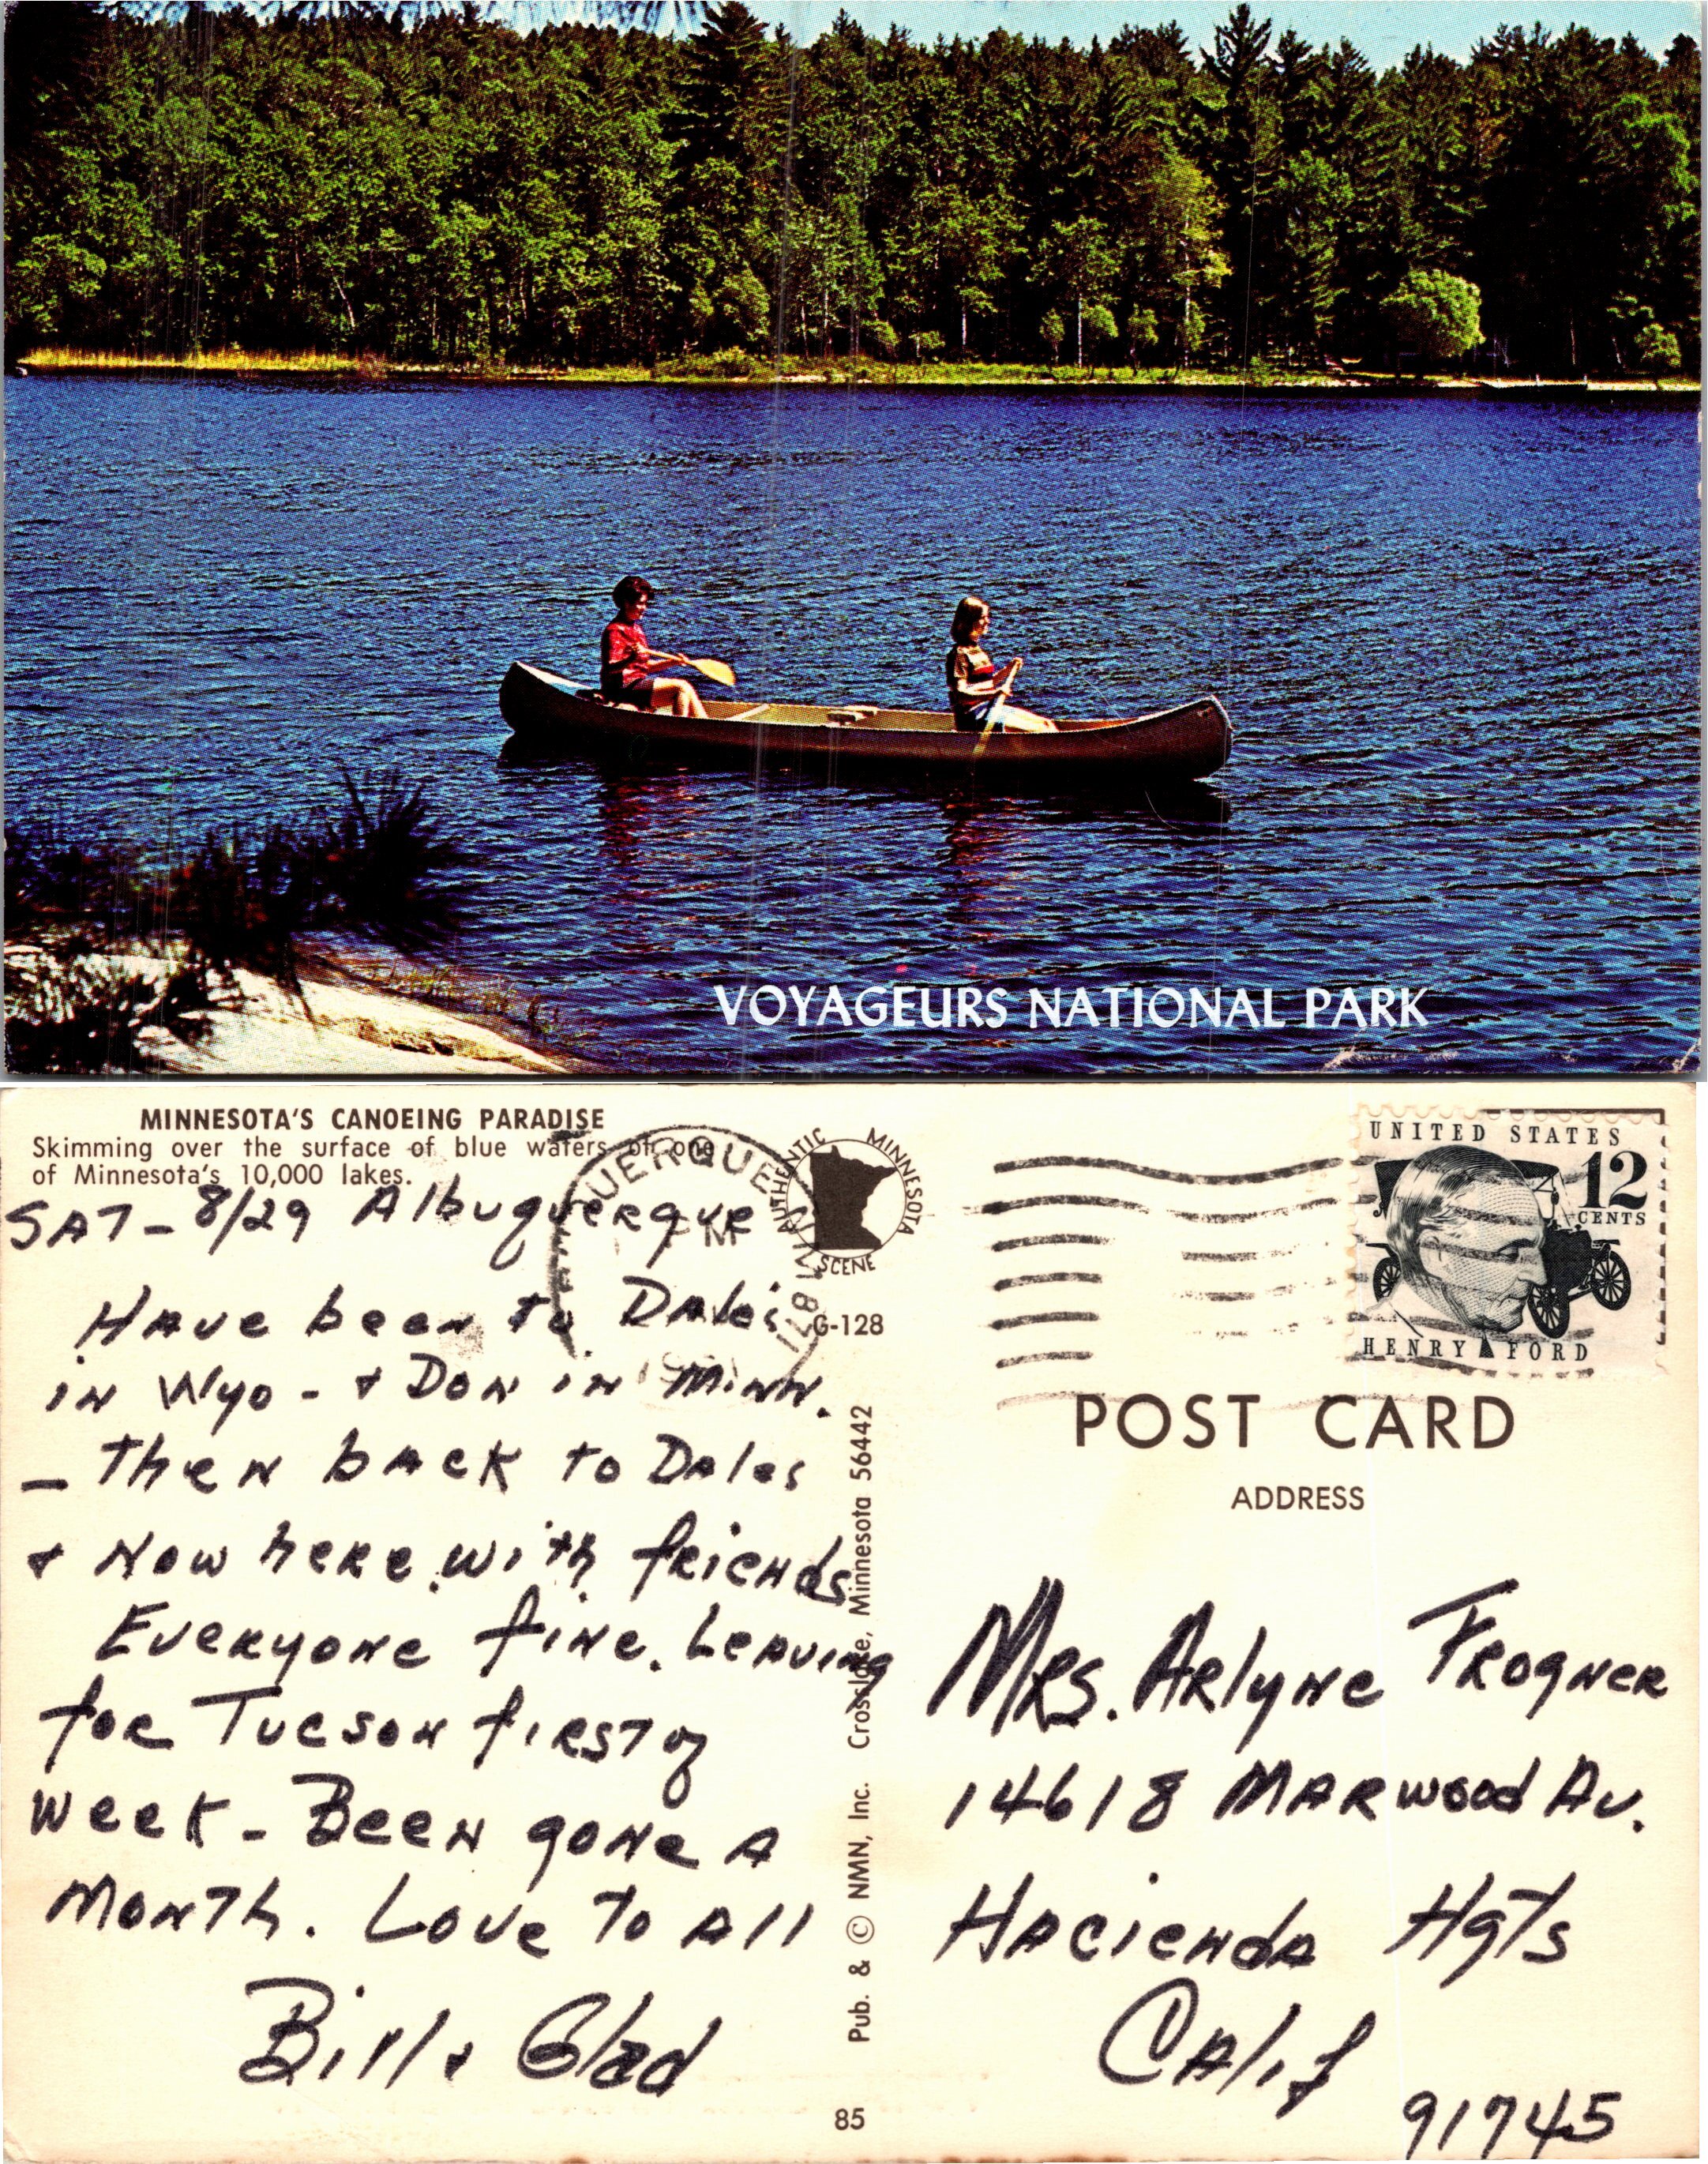 VOYAGEURS NATIONAL PARK
MINNESOTA'S CANOEING PARADISE
Skimming over the surface of blue waters of one
of Minnesota's 10,000 lakes.
AUTHENTIC MINNESOTA
SCENE
G-128
SAT - 8/29 Albuquerque
Have been to Dale's
in Wyo - + Don in Minn.
- Then back to Dales
+ Now here with friends
Everyone fine. Leaving
for Tucson first of
week - Been gone a
month. Love to all
Bill + Glad
Pub. & © NMN, Inc. Crosslake, Minnesota 56442
85
UNITED STATES
12
CENTS
HENRY FORD
POST CARD
ADDRESS
Mrs. Arlyne Frogner
14618 Marwood Av.
Hacienda Hgts
Calif
91745